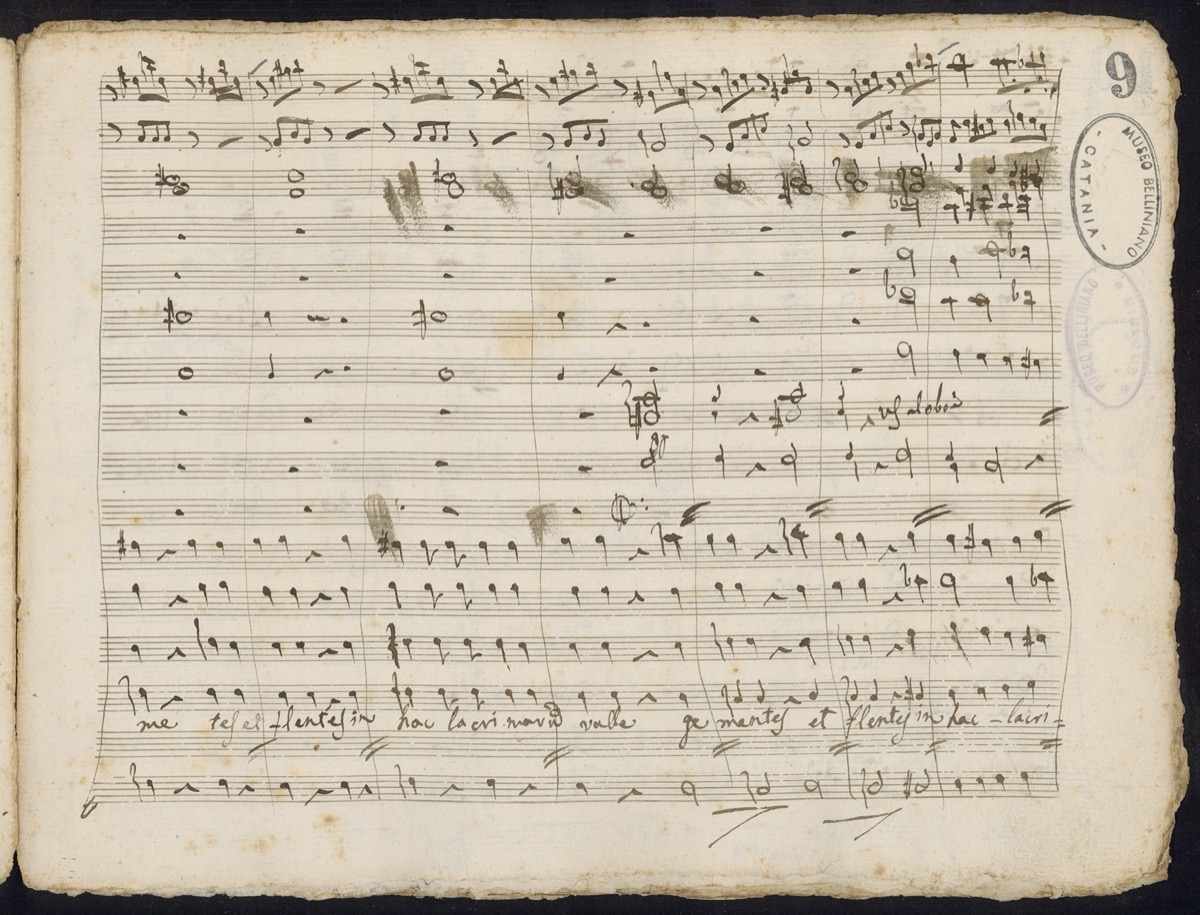 9
MUSEO BELLINIANO
- CATANIA -
MUSEO BELLINIANO
me tes et flentes in hac lacrimarum valle gementes et flentes in hac - lacri -